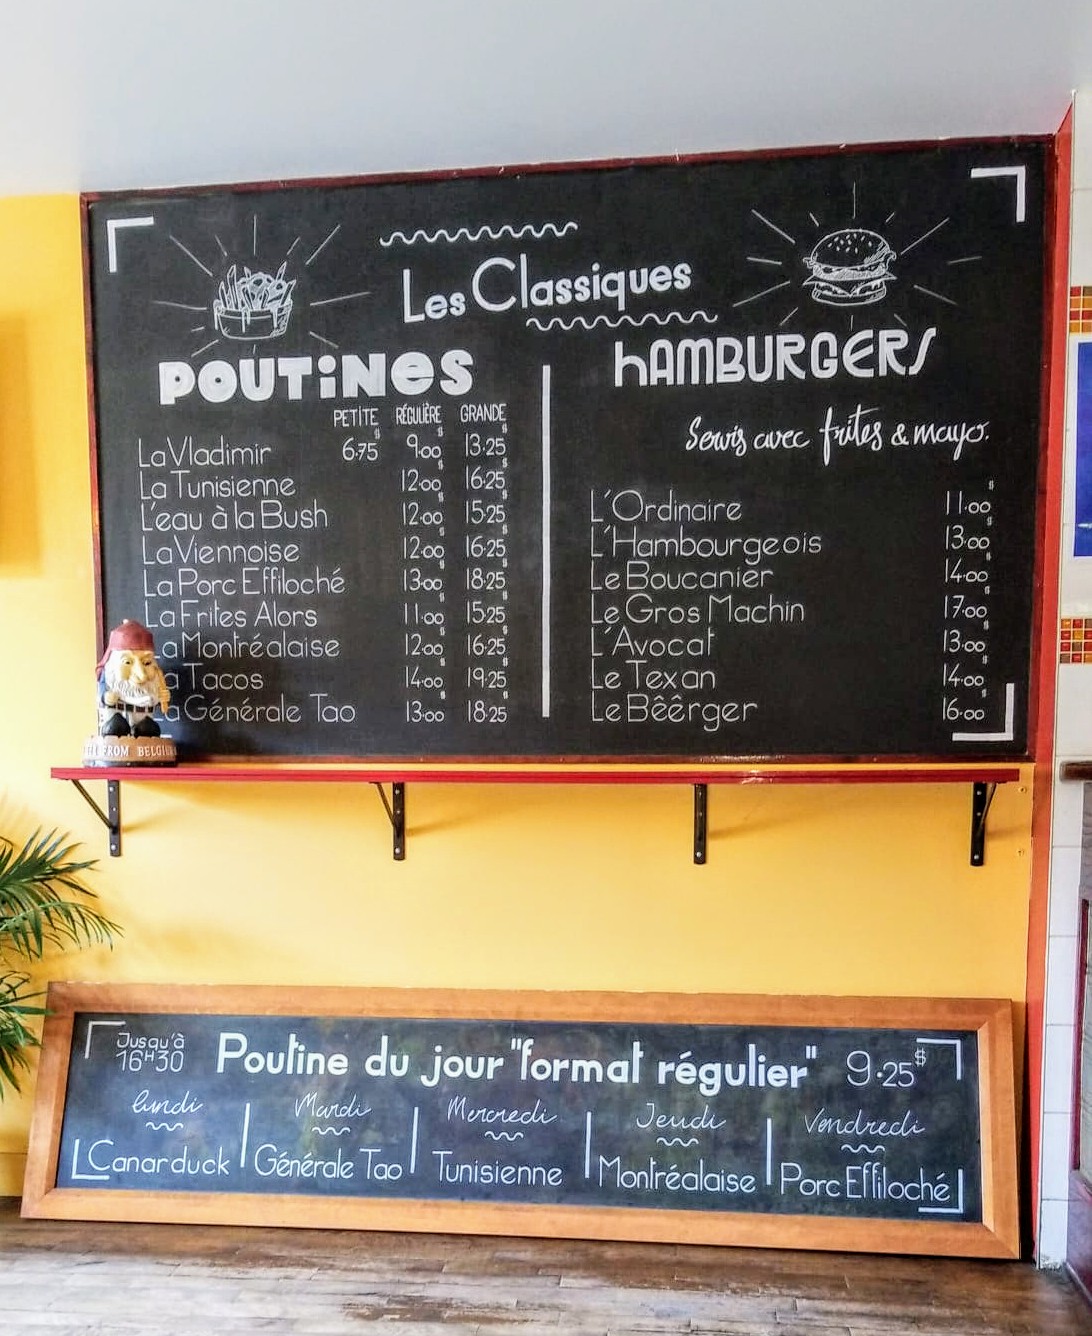 Les Classiques
POUTINES
PETITE RÉGULIÈRE GRANDE
La Vladimir 6.75$ 9.00$ 13.25$
La Tunisienne 12.00$ 16.25$
L'eau à la Bush 12.00$ 15.25$
La Viennoise 12.00$ 16.25$
La Porc Effiloché 13.00$ 18.25$
La Frites Alors 11.00$ 15.25$
La Montréalaise 12.00$ 16.25$
a Tacos 14.00$ 19.25$
La Générale Tao 13.00$ 18.25$
HAMBURGERS
Servis avec frites & mayo.
L'Ordinaire 11.00$
L'Hambourgeois 13.00$
Le Boucanier 14.00$
Le Gros Machin 17.00$
L'Avocat 13.00$
Le Texan 14.00$
Le Bêêrger 16.00$
FROM BELGIUM
Jusqu'à
16H30
Poutine du jour "format régulier" 9.25$
Lundi Mardi Mercredi Jeudi Vendredi
Canarduck Générale Tao Tunisienne Montréalaise Porc Effiloché